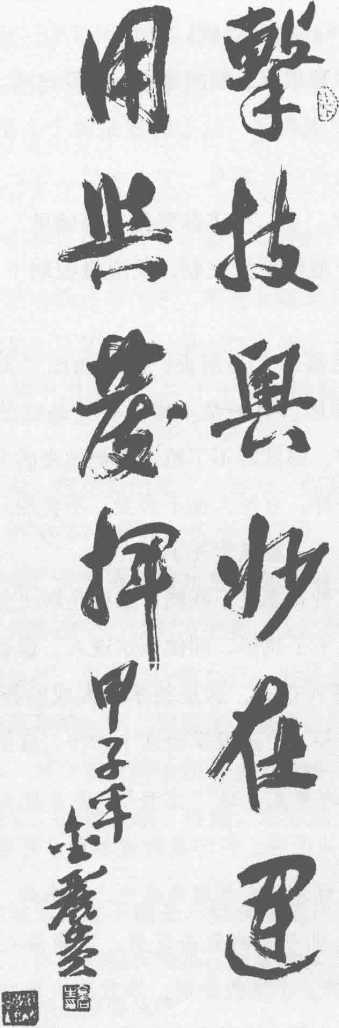 擊技奧妙在運
用與發揮 甲子年